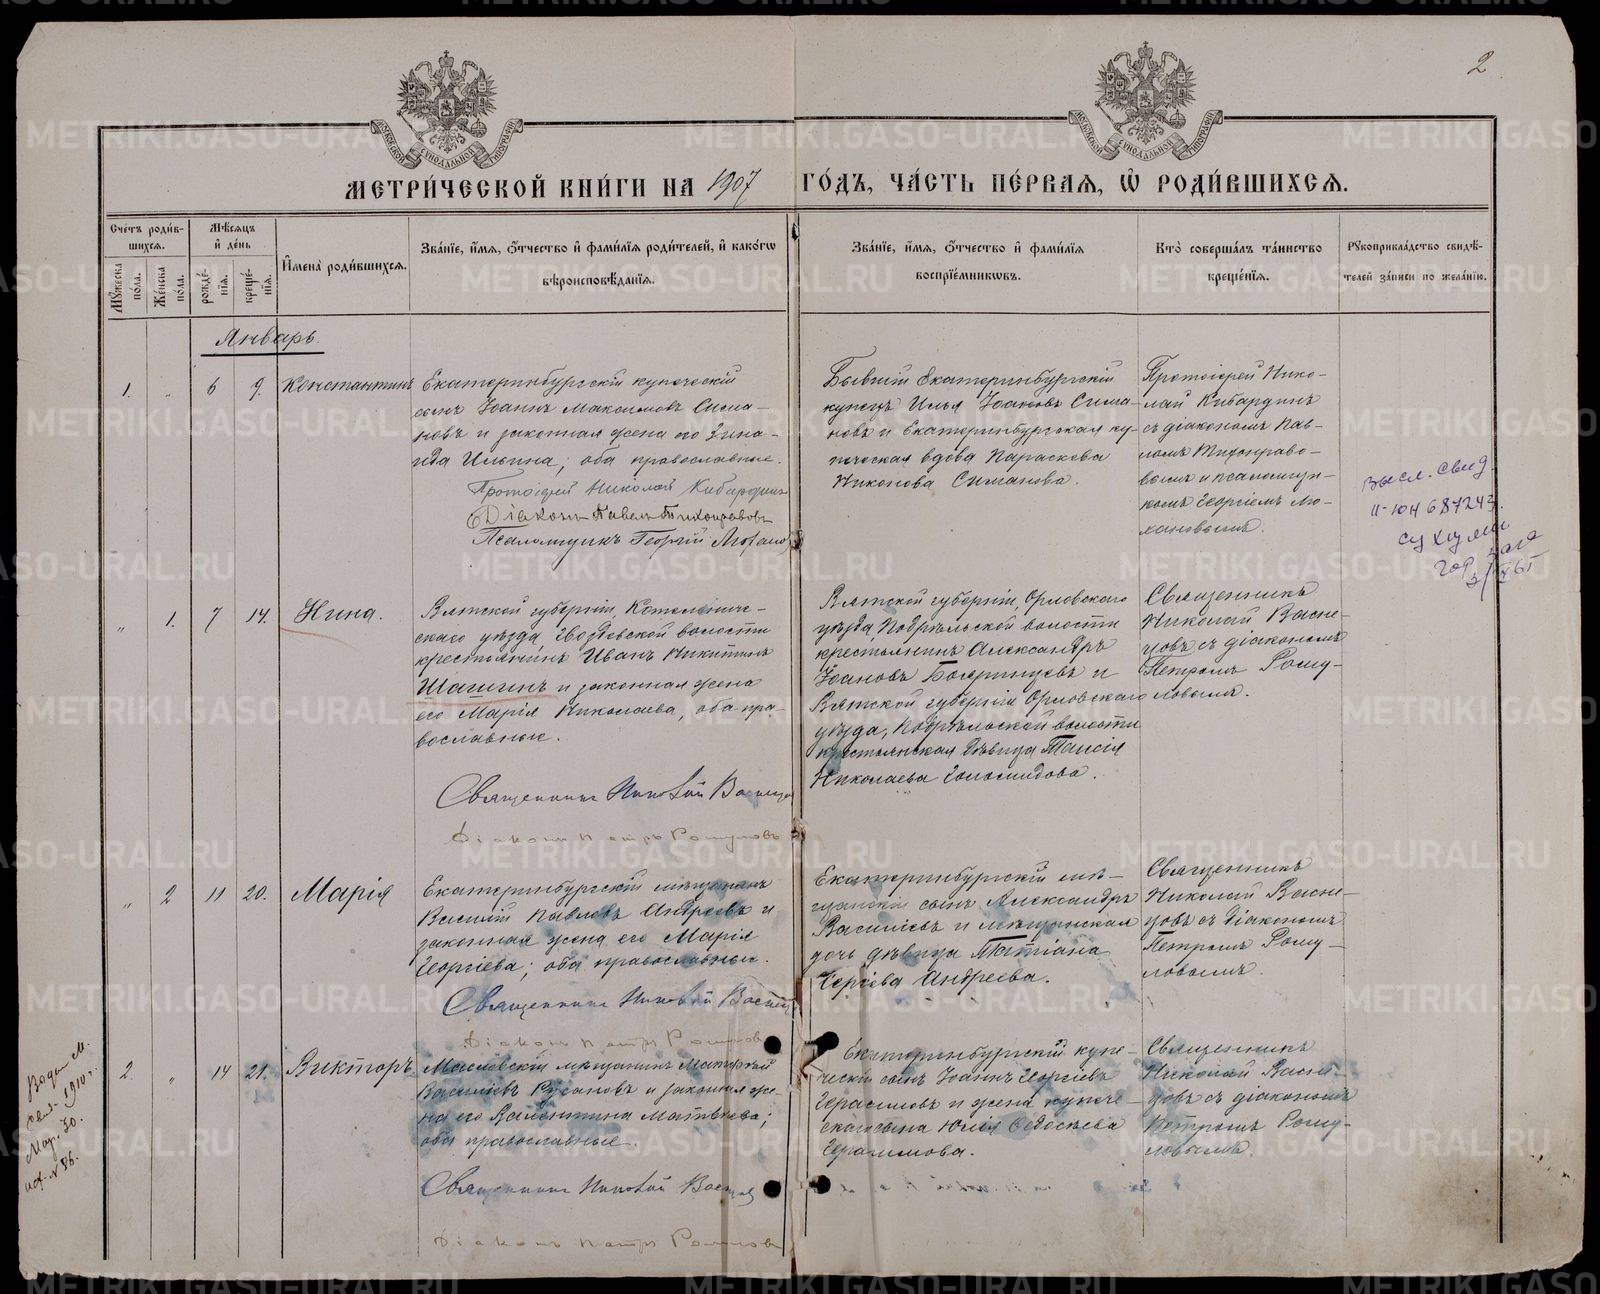 2
МЕТРИ́ЧЕСКОЙ КНИ́ГИ НА 1907 ГО́ДЪ, ЧА́СТЬ ПЕ́РВАЯ, Ѡ РОДИ́ВШИХСЯ.
Сче́тъ роди́в-
шихся.
Мꙋ́жеска по́ла.
Же́нска по́ла.
Мѣ́сяцъ и҆ де́нь
рожде́-
нїя.
креще́-
нїя.
И҆мена̀ роди́вшихся.
Зва́нїе, и҆́мя, ѻ҆́тчество и҆ фами́лїя роди́телей, и҆ како́гѡ
вѣроисповѣ́данїя.
Зва́нїе, и҆́мя, ѻ҆́тчество и҆ фами́лїя
воспрїе́мникѡвъ.
Кто̀ соверша́лъ та́инство
креще́нїя.
Рꙋкоприкла́дство свидѣ́-
телей за́писи по жела́нїю.
Январь.
1. " 6 9. Константинъ
Екатеринбургскій купеческій
сынъ Іоаннъ Максимовъ Сима-
новъ и законная жена его Зина-
ида Ильина, оба православные.
Протоіерей Николай Кибардинъ
Діаконъ Павелъ Тихонравовъ
Псаломщикъ Георгій
Бывшій Екатеринбургскій
купецъ Илья Іоаковъ Сима-
новъ и Екатеринбургская ку-
печеская вдова Параскева
Никонова Симанова.
Протоіерей Нико-
лай Кибардинъ
съ діакономъ Пав-
ломъ Тихонраво-
вымъ и псаломщи-
комъ Георгіемъ
Высл. свид.
II-ЮН 687243
сухуми
гор загс
" 1. 7 14. Нина.
Вятской губерніи Котельниче-
скаго уѣзда, Гвоздевской волости
крестьянинъ Иванъ Никитинъ
Шашинъ и законная жена
его Марія Николаева, оба пра-
вославные.
Священникъ Николай Васнецов
Діаконъ Петръ Ромуловъ
Вятской губерніи, Орловскаго
уѣзда, Подрѣльской волости
крестьянинъ Александръ
Іоановъ Бояринцевъ и
Вятской губерніи Орловскаго
уѣзда, Подрѣльской волости
крестьянская дѣвица Таисія
Николаева
Священникъ
Николай Васне-
цовъ съ діакономъ
Петромъ Рому-
ловымъ.
" 2 11 20. Марія
Екатеринбургскій мѣщанинъ
Василій Павловъ Андреевъ и
законная жена его Марія
Георгіева; оба православные.
Священникъ Николай Васнец
Діаконъ Петръ Ромулов
Екатеринбургскій мѣ-
щанскій сынъ Александръ
Васильевъ и мѣщанская
дочь дѣвица Татіана
Сергіева Андреева.
Священникъ
Николай Васне-
цовъ съ діакономъ
Петромъ Рому-
ловымъ.
2. " 14 21. Викторъ
Московскій мѣщанинъ Матѳей
Васильевъ Русановъ и законная же-
на его Валентина Матвѣева;
оба православные.
Священникъ Николай Васнецов
Діаконъ Петръ Ромулов
Екатеринбургскій купе-
ческій сынъ Іоаннъ Георгіевъ
Герасимовъ и жена купече-
скаго сына Юлія Ѳедосѣева
Герасимова.
Священникъ
Николай Васне-
цовъ съ діакономъ
Петромъ Рому-
ловымъ.
Выдан м.
свид. 1910 г.
Мар. 30.
исх. № 86.
METRIKI.GASO-URAL.RU